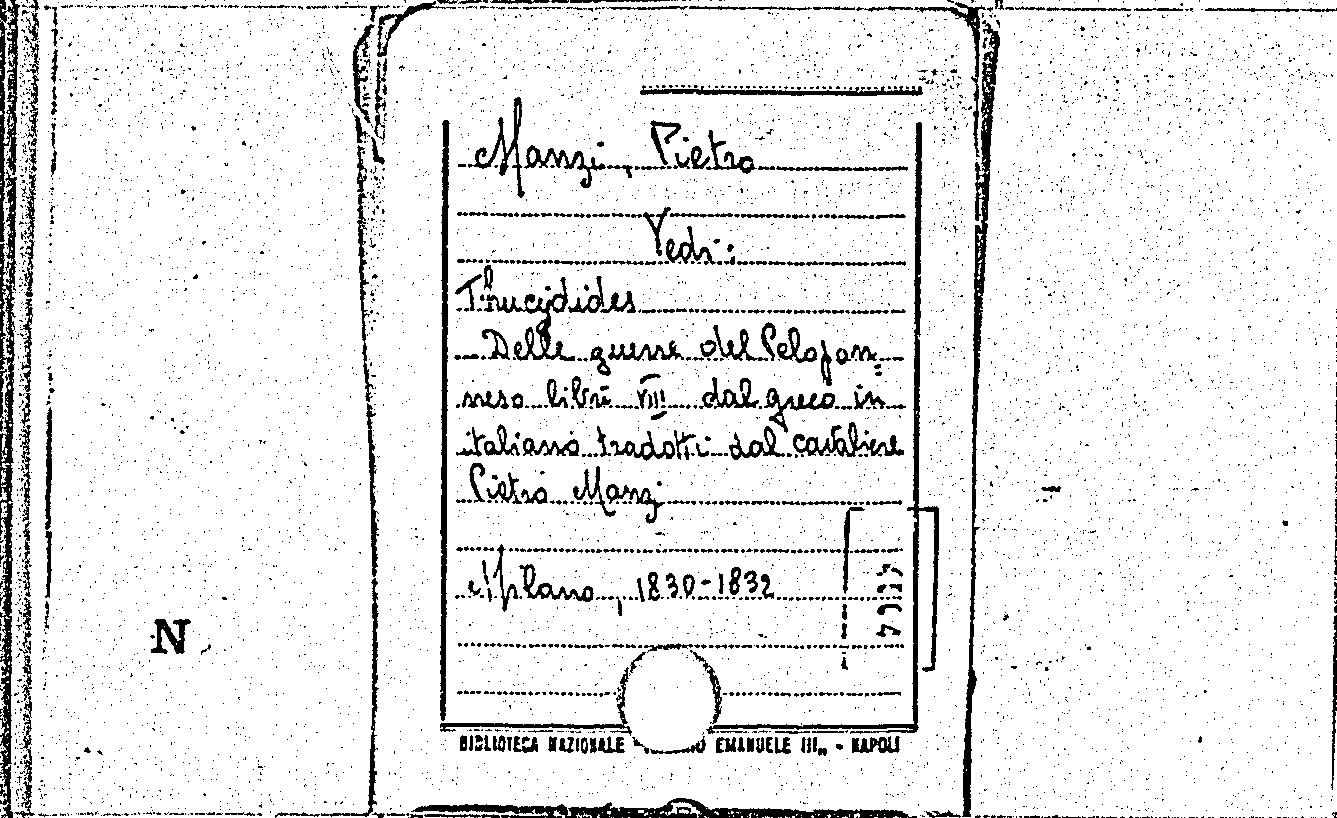 Manzi, Pietro
Vedi:
Thucydides
Delle guerre del Pelopon=
neso libri VIII dal greco in
italiano tradotti dal cavaliere
Pietro Manzi
Milano, 1830-1832
N
BIBLIOTECA NAZIONALE EMANUELE III„ - NAPOLI